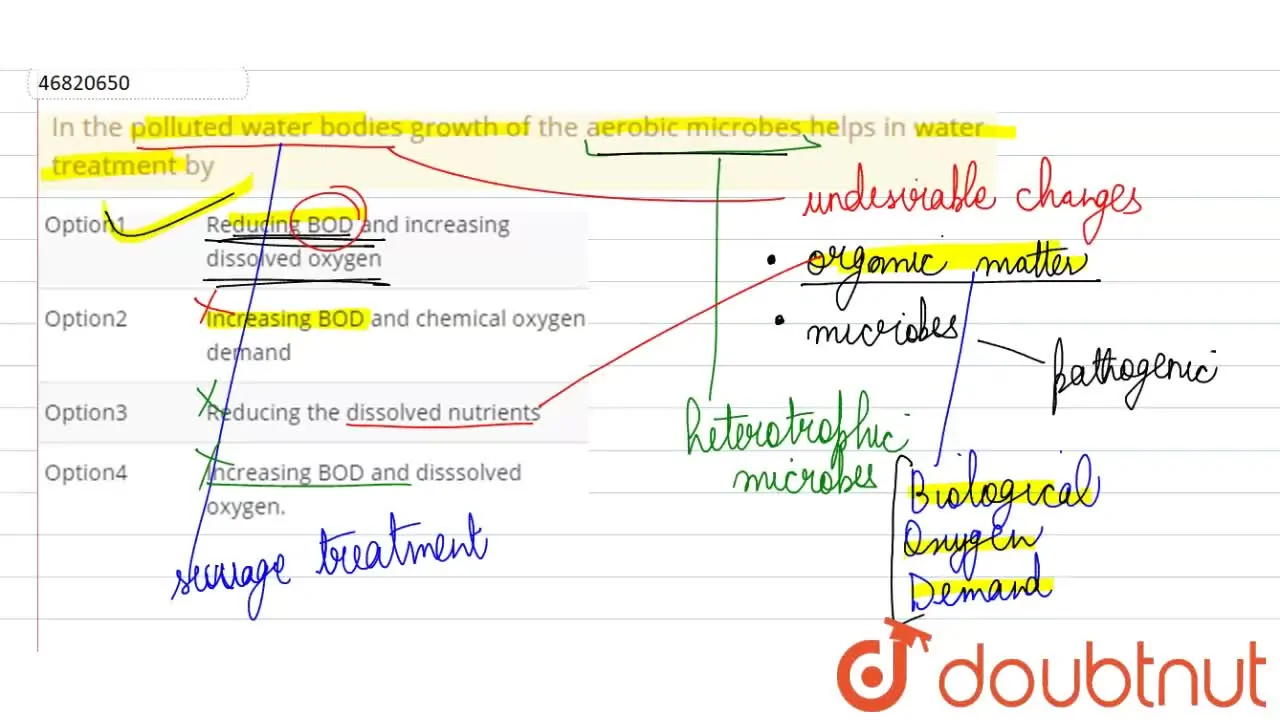 46820650
In the polluted water bodies growth of the aerobic microbes helps in water
treatment by
Option1
Reducing BOD and increasing
dissolved oxygen
Option2
Increasing BOD and chemical oxygen
demand
Option3
Reducing the dissolved nutrients
Option4
Increasing BOD and disssolved
oxygen.
sewage treatment
undesirable changes
• organic matter
• microbes
pathogenic
heterotrophic
microbes
Biological
Oxygen
Demand
doubtnut